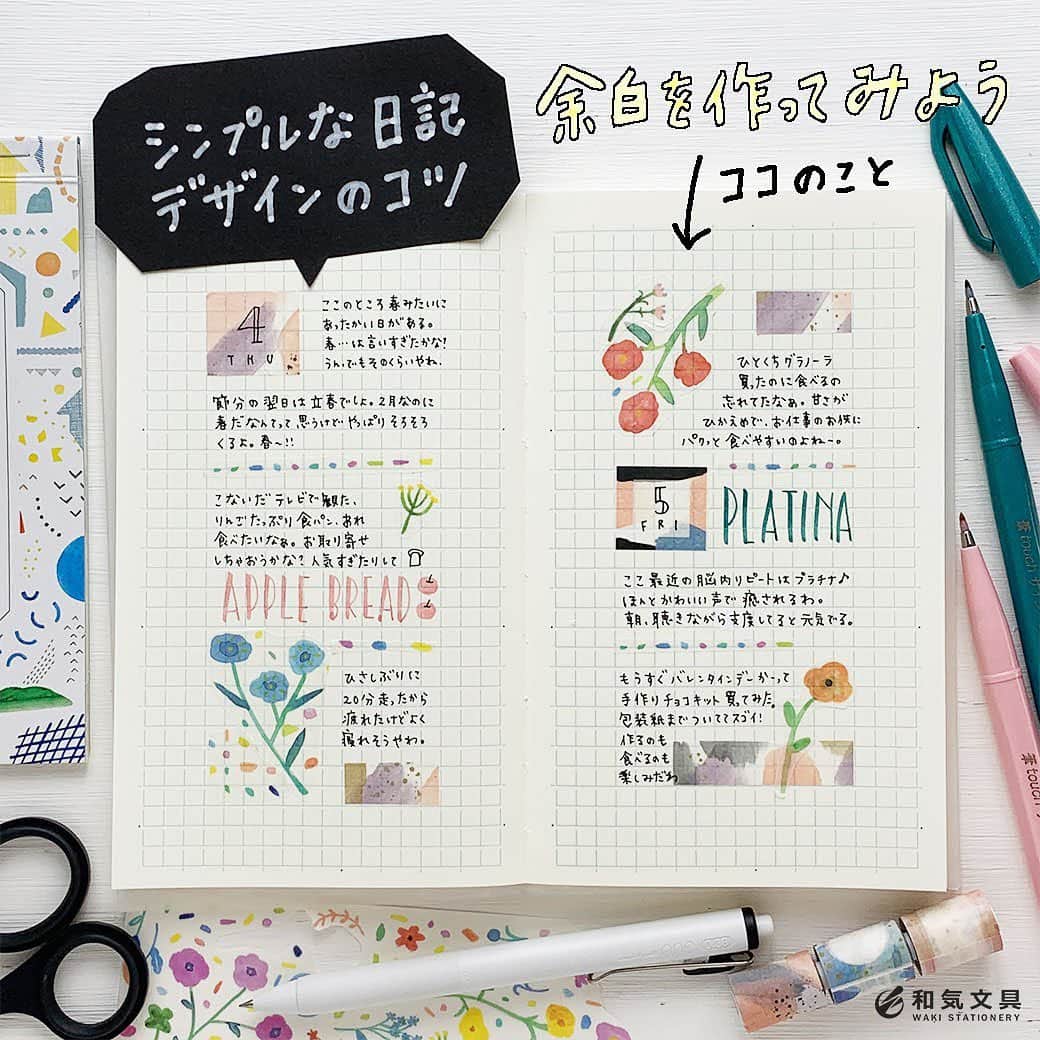 シンプルな日記
デザインのコツ
余白を作ってみよう
ココのこと
4
THU
ここのところ春みたいに
あったかい日がある。
春…は言いすぎたかな!
うん、でもそのくらいやね。
節分の翌日は立春でしょ。2月なのに
春だなんてって思うけどやっぱりそろそろ
くるよ。春〜!!
こないだテレビで観た、
りんごたっぷり食パン、あれ
食べたいなぁ。お取り寄せ
しちゃおうかな?人気すぎたりして
APPLE BREAD
ひさしぶりに
20分走ったから
疲れたけどよく
寝れそうやわ。
ひとくちグラノーラ
買ったのに食べるの
忘れてたなぁ。甘さが
ひかえめで、お仕事のお供に
パクッと食べやすいのよね〜。
5
FRI
PLATINA
ここ最近の脳内リピートはプラチナ♪
ほんとかわいい声で癒されるわ。
朝、聴きながら支度してると元気でる。
もうすぐバレンタインデーかーって
手作りチョコキット買ってみた。
包装紙までついててスゴイ!
作るのも
食べるのも
楽しみだわ
筆touch
筆touch
和気文具
WAKI STATIONERY